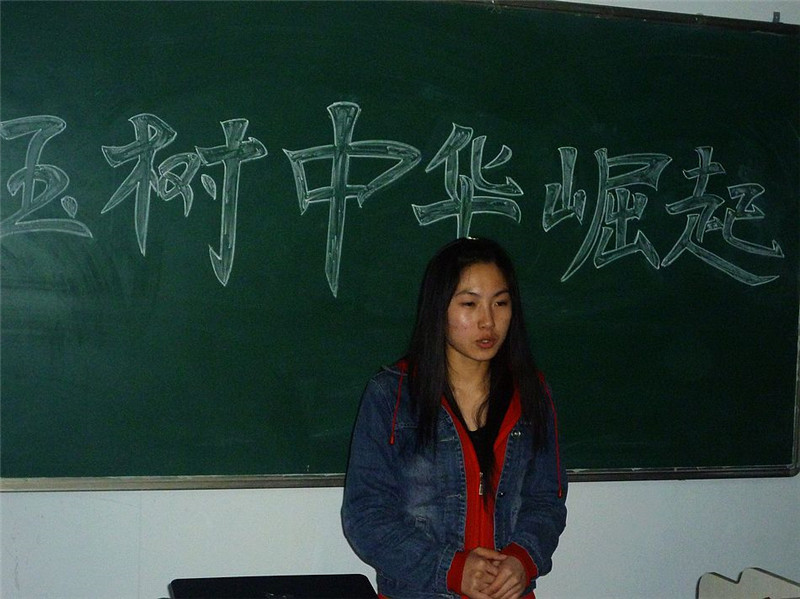 玉树中华崛起